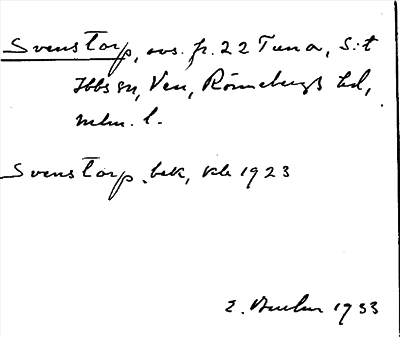 Svenstorp, avs. fr. 22 Tuna, S:t
Ibbs sn, Ven, Rönnebergs hd,
Malm. l.
Svenstorp, bek, kb 1923
E. 1933